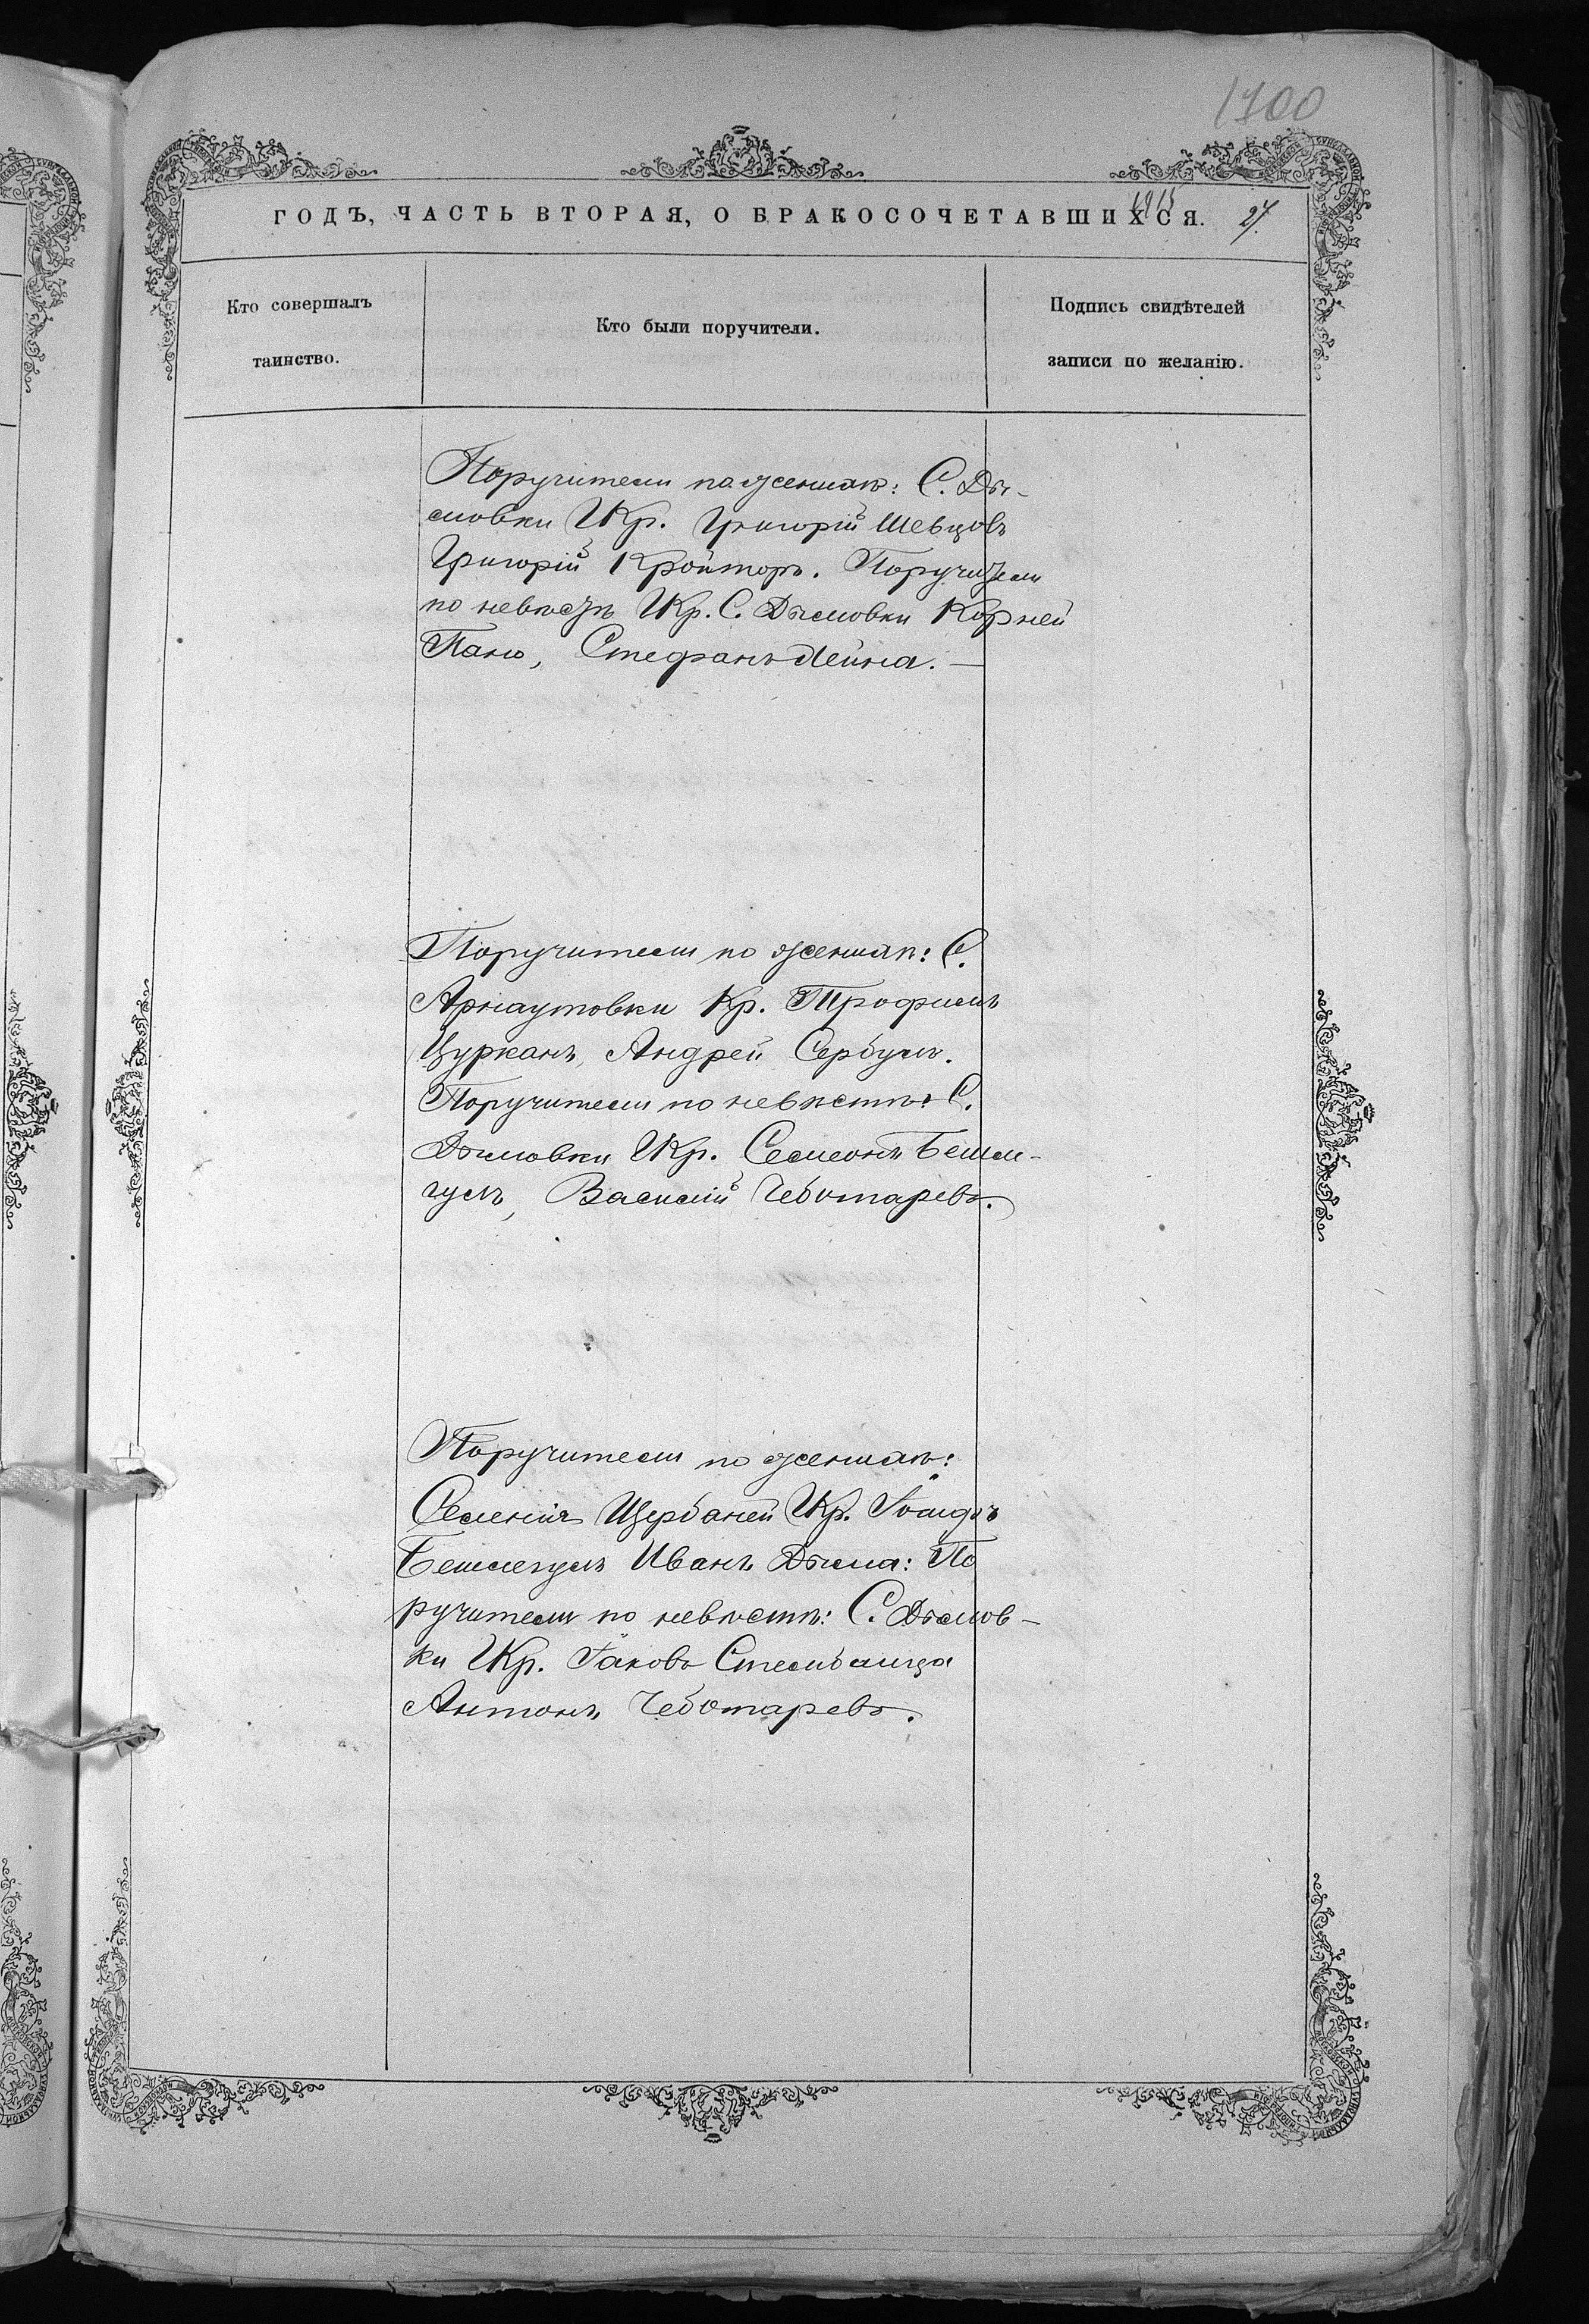 1700
ГОДЪ, ЧАСТЬ ВТОРАЯ, О БРАКОСОЧЕТАВШИХСЯ. 27.
Кто совершалъ
таинство.
Кто были поручители.
Подпись свидѣтелей
записи по желанію.
Поручители по женихѣ: С. Ды-
мовки Кр. Григорій Шевцовъ
Григорій Кройторъ. Поручители
по невѣстѣ Кр. С. Дымовки Корней
Паню, Стефанъ Лейна. —
Поручители по женихѣ: С.
Арнаутовки Кр. Трофимъ
Цурканъ, Андрей Сербулъ.
Поручители по невѣстѣ: С.
Дымовки Кр. Семеонъ Бешле-
гулъ, Василій Чеботаревъ.
Поручители по женихѣ:
Селенія Щербаней Кр.
Бешлегулъ Иванъ Дыма: По
ручители по невѣстѣ: С. Дымов-
ки Кр. Іаковъ
Антонъ Чеботаревъ.